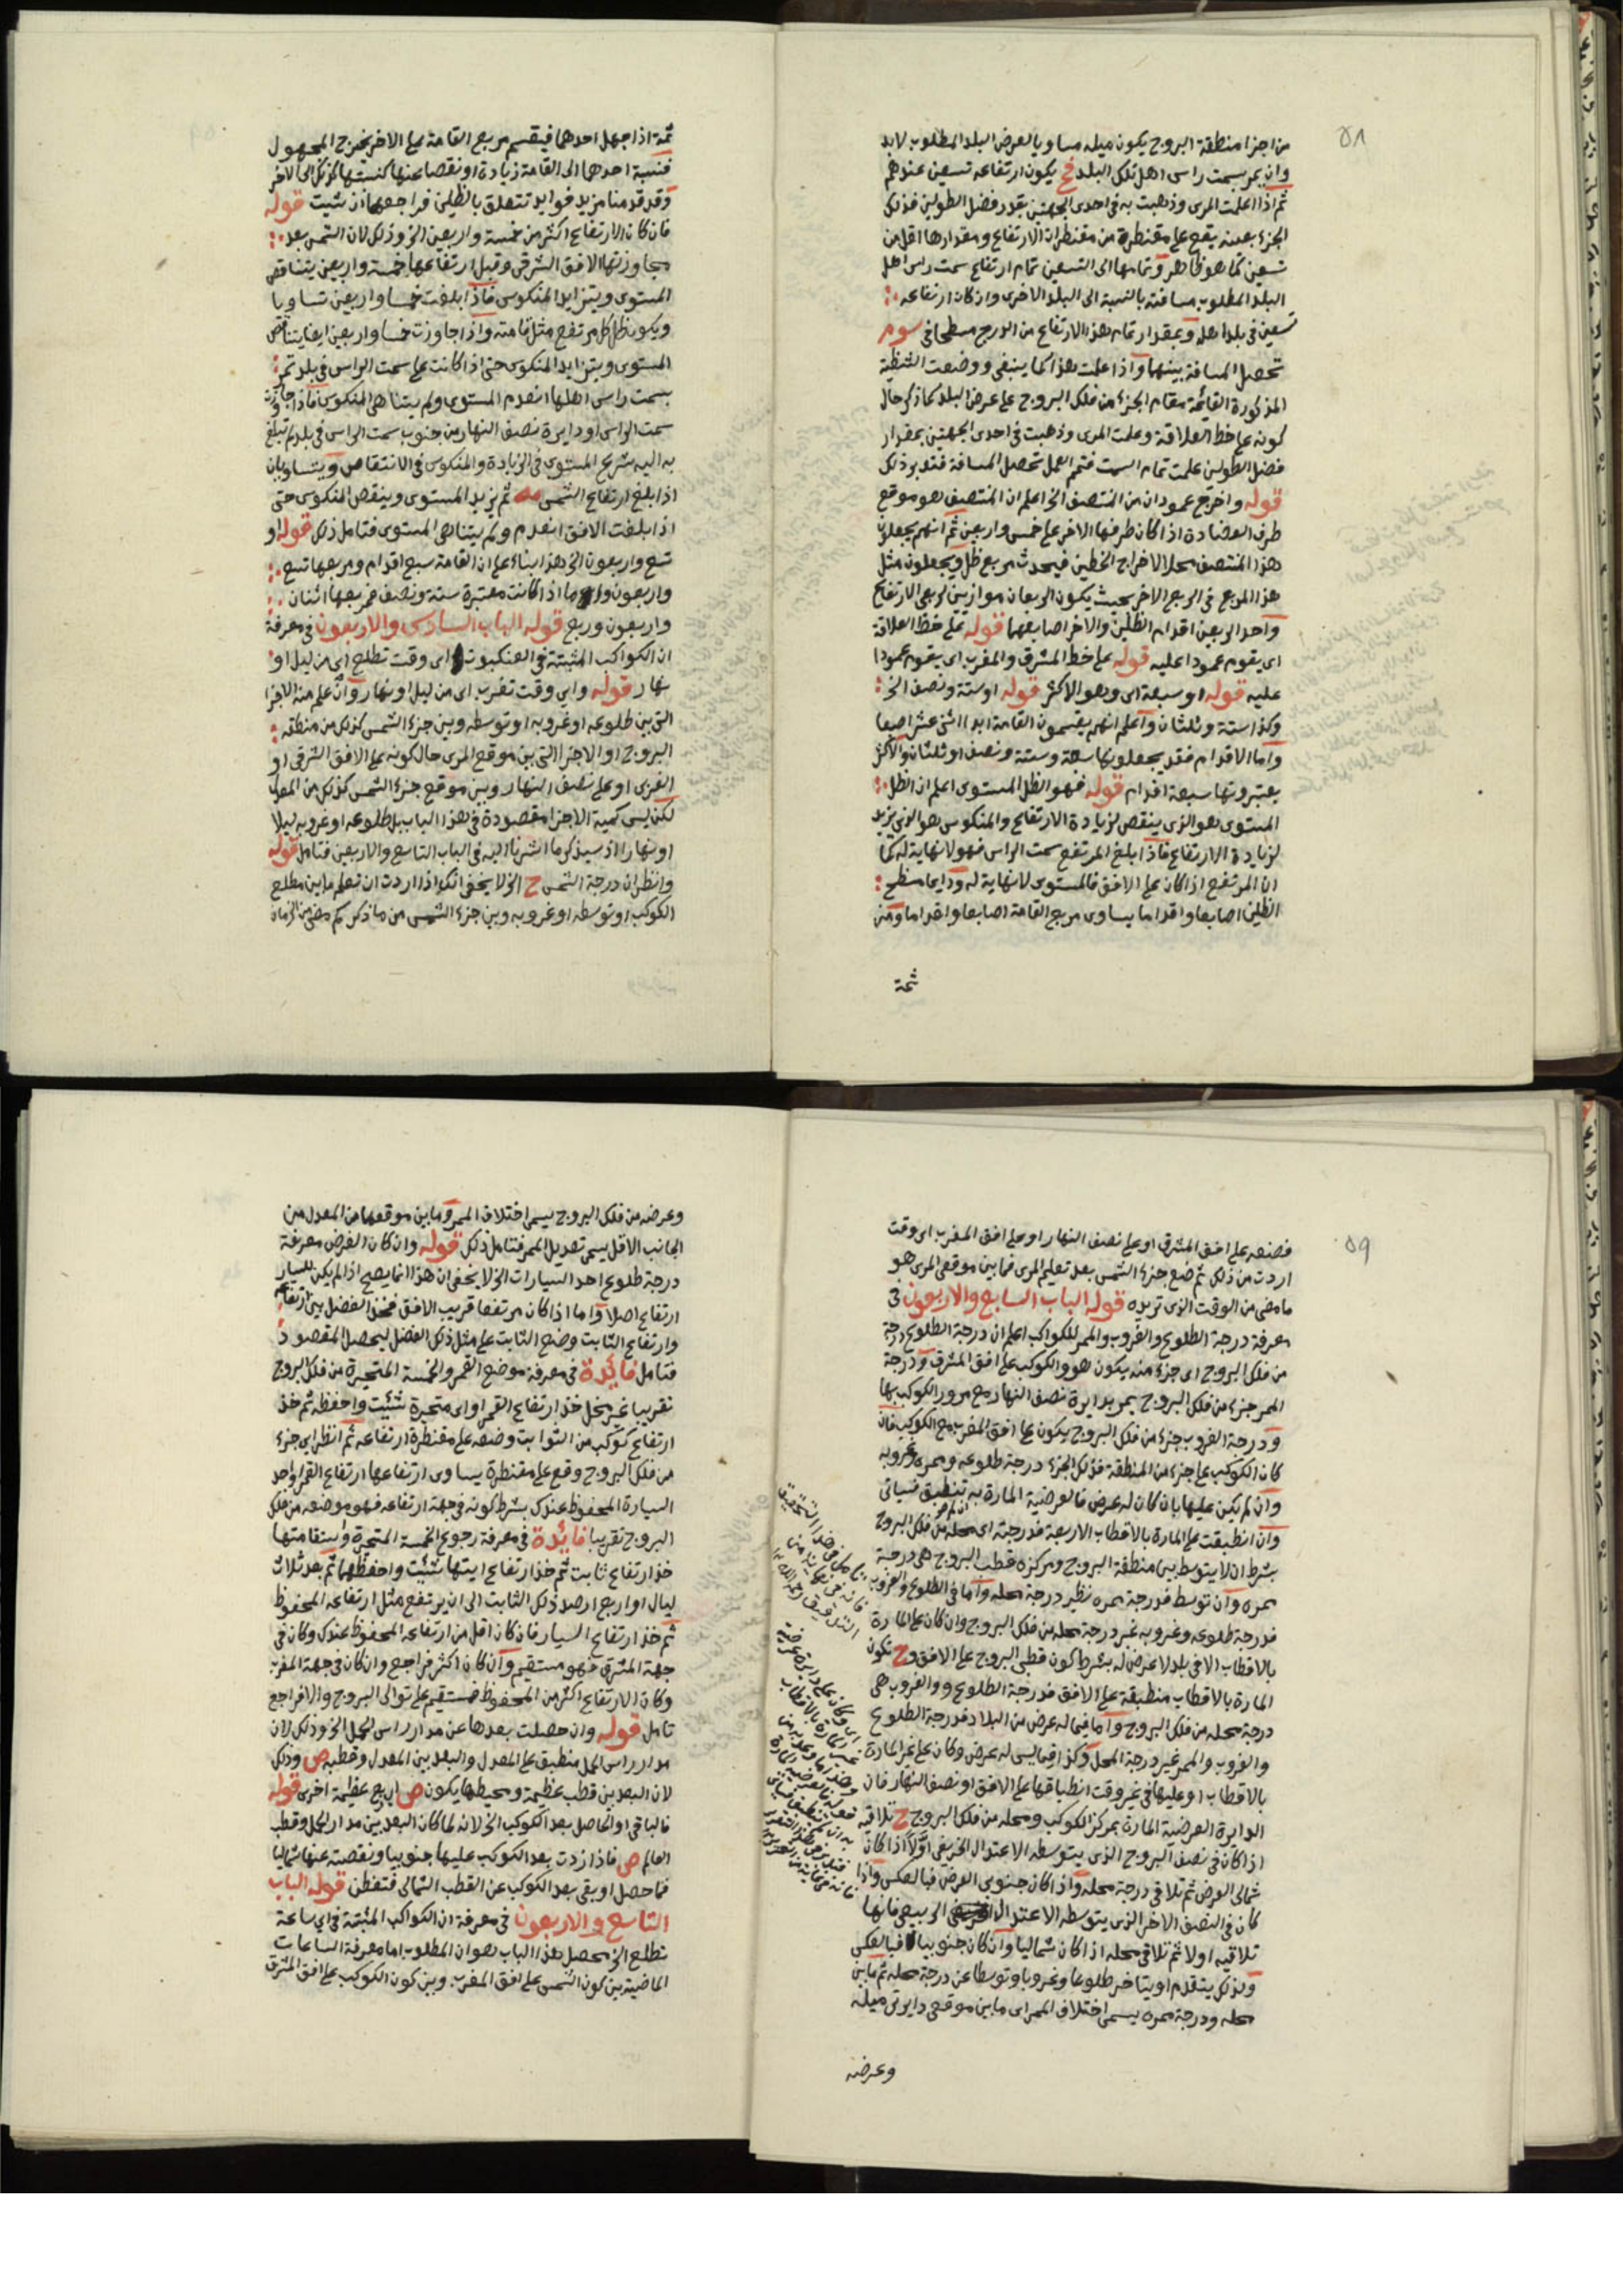 ٥٨
من اجزا منطقة البروج يكون ميله مساويا لعرض البلد المطلوب لابد
وان يمر بسمت راس اهل تلك البلد فح يكون ارتفاعه تسعين عندهم
ثم اذا اعلمت المرى وذهبت به في احدى الجهتين بقدر فضل الطولين فذلك
الجزء بعينه يقع على مقنطرة من مقنطرات الارتفاع ومقدارها اقل من
تسعين كما هو ظاهر وتمامها الى التسعين تمام ارتفاع سمت راس اهل
البلد المطلوب مسافته بالنسبة الى البلد الاخرى وان كان ارتفاعه
تسعين في بلد اهله وبمقدار تمام هذا الارتفاع من الدرج مسطحا في سوم
تحصل المسافة بينهما واذا علمت هذا كما ينبغي ووضعت الشظية
المذكورة القائمة مقام الجزء من فلك البروج على عرض البلد كما ذكر حال
كونه على خط العلاقة وعلمت المرى وذهبت في احدى الجهتين بمقدار
فضل الطولين علمت تمام السمت فتمم العمل تحصل المسافة فتدبر ذلك
قوله واخرج عمودان من المنتصف الخ اعلم ان المنتصف هو موقع
طرف العضادة اذا كان طرفها الاخر على خمس واربعين ثم انهم يجعلون
هذا المنتصف محلا لاخراج الخطين فيحدث مربع ظل ويجعلون مثل
هذا المربع في الربع الاخر بحيث يكون الربعان موازيين لربعي الارتفاع
واحد الربعين اقدام الظلين والاخر اصابعهما قوله على خط العلاقة
اى يقوم عمودا عليه قوله على خط المشرق والمغرب اى يقوم عمودا
عليه قوله او سبعة اى وهو الاكثر قوله او ستة ونصف الخ
وكذا ستة وثلثان واعلم انهم يقسمون القامة ابدا اثنى عشر اصبعا
واما الاقدام فقد يجعلونها سبعة وستة ونصف او ثلثان والاكثر
يعتبرونها سبعة اقدام قوله فهو الظل المستوى اعلم ان الظل
المستوى هو الذي ينقص لزيادة الارتفاع والمنكوس هو الذي يزيد
لزيادة الارتفاع فاذا بلغ المرتفع سمت الراس فهو لا نهاية له كما
ان المرتفع اذا كان على الافق فالمستوى لا نهاية له ودايما مسطح
الظلين اصابعا واقداما يساوى مربع القامة اصابعا واقداما ومن
ثمة
ثمة اذا جهل احدهما فيقسم مربع القامة على الاخر يخرج المجهول
فنسبة احدهما الى القامة زيادة او نقصا عنها كنسبتها كذلك الى الاخر
وقد قدمنا مزيد فوايد تتعلق بالظلين فراجعها ان شيت قوله
فان كان الارتفاع اكثر من خمسة واربعين الخ وذلك لان الشمس بعد
مجاوزتها الافق الشرقي وقبل ارتفاعها خمسة واربعين يتناقص
المستوى ويتزايد المنكوس فاذا بلغت خمسا واربعين تساويا
ويكون ظل كل مرتفع مثل قامته واذا جاوزت خمسا واربعين ايضا يتناقص
المستوى ويتزايد المنكوس حتى اذا كانت على سمت الراس في بلد تمر
بسمت راس اهلها انعدم المستوى ولم يتناهى المنكوس فاذا جاوزت
سمت الراس او دايرة نصف النهار من جنوب سمت الراس في بلد لم تبلغ
به اليه شرع المستوى في الزيادة والمنكوس في الانتقاص ويتساويان
اذا بلغ ارتفاع الشمس مه ثم يزيد المستوى وينقص المنكوس حتى
اذا بلغت الافق انعدم ولم يتناهى المستوى فتامل ذلك قوله او
تسع واربعون الخ هذا بناء على ان القامة سبع اقدام ومربعها تسع
واربعون واما اذا كانت معتبرة ستة ونصف فمربعها اثنان
واربعون وربع قوله الباب السادس والاربعون في معرفة
ان الكواكب المثبتة في العنكبوت اى وقت تطلع اى من ليل او
نهار قوله واى وقت تغرب اى من ليل او نهار وان علم منه الاجزا
التى بين طلوعه او غروبه او توسطه وبين جزء الشمس كذلك من منطقه
البروج او الاجزا التى بين موقع المرى حال كونه على الافق الشرقي او
الغربى او على نصف النهار وبين موقع جزء الشمس كذلك من المعدل
لكن ليس كمية الاجزا مقصودة في هذا الباب بل طلوعه او غروبه ليلا
او نهارا اذ سيذكر ما اشرنا اليه في الباب التاسع والاربعين فتامل قوله
وانظر ان درجة الشمس ح الخ لا يخفى انك اذا اردت ان تعلم ما بين مطلع
الكوكب او توسطه او غروبه وبين جزء الشمس من ما ذكر كم مضى من الزمان
٥٩
فضعه على افق المشرق او على نصف النهار او على افق المغرب اى وقت
اردت من ذلك ثم ضع جزء الشمس بعد تعليم المرى فما بين موقعى المرى هو
ما مضى من الوقت الذى تريده قوله الباب السابع والاربعون في
معرفة درجة الطلوع والغروب والممر للكواكب اعلم ان درجة الطلوع درجة
من فلك البروج اى جزء منه يكون هو والكوكب على افق المشرق ودرجة
الممر جزء من فلك البروج يمر بدايرة نصف النهار مع مرور الكوكب بها
ودرجة الغروب جزء من فلك البروج يكون على افق المغرب مع الكوكب فان
كان الكوكب على جزء من المنطقة فذلك الجزء درجة طلوعه وممره وغروبه
وان لم يكن عليها بان كان له عرض فالعرضية المارة به تنطبق فسياتى
وان انطبقت على المارة بالاقطاب الاربعة فدرجته اى محله من فلك البروج
بشرط ان لا يتوسط بين منطقة البروج ومركزه قطب البروج هى درجة
ممره وان توسط فدرجة ممره نظير درجة محله واما في الطلوع والغروب
فدرجة طلوعه وغروبه غير درجة محله من فلك البروج وان كان على المارة
بالاقطاب الا في بلد لا عرض له بشرط كون قطبى البروج على الافق وح تكون
المارة بالاقطاب منطبقة على الافق فدرجة الطلوع والغروب هى
درجة محله من فلك البروج واما فيما له عرض من البلاد فدرجة الطلوع
والغروب والممر غير درجة المحل وكذا فيما ليس له عرض وكان على غير المارة
بالاقطاب او عليها في غير وقت انطباقها على الافق او نصف النهار فان
الدايرة العرضية المارة بمركز الكوكب ومحله من فلك البروج ح تلاقيه
اذا كان في نصف البروج الذى يتوسطه الاعتدال الخريفى اولا اذا كان
شمالى العرض ثم تلاقى درجة محله واذا كان جنوبى العرض فبالعكس واذا
كان في النصف الاخر الذى يتوسطه الاعتدال الربيعى فانها
تلاقيه اولا ثم تلاقى محله اذا كان شماليا وان كان جنوبيا فبالعكس
ولذلك يتقدم او يتاخر طلوعا وغروبا وتوسطا عن درجة محله ثم ما بين
محله ودرجة ممره يسمى اختلاف الممر اى ما بين موقعى دايرتى ميله
وعرضه
وعرضه من فلك البروج يسمى اختلاف الممر وما بين موقعهما من المعدل من
الجانب الاقل يسمى تعديل الممر فتامل ذلك قوله وان كان الغرض معرفة
درجة طلوع احد السيارات الخ لا يخفى ان هذا انما يصح اذا لم يكن للسيار
ارتفاع اصلا واما اذا كان مرتفعا قريب الافق فخذ الفضل بين ارتفاعه
وارتفاع الثابت وضع الثابت على مثل ذلك الفضل ليحصل المقصود
فتامل فايدة في معرفة موضع القمر والخمسة المتحيرة من فلك البروج
تقريبا غير مخل خذ ارتفاع القمر او اى متحيرة شئيت واحفظه ثم خذ
ارتفاع كوكب من الثوابت وضعه على مقنطرة ارتفاعه ثم انظر اى جزء
من فلك البروج وقع على مقنطرة يساوى ارتفاعها ارتفاع القمر او احد
السيارة المحفوظ عندك بشرط كونه في جهة ارتفاعه فهو موضعه من فلك
البروج تقريبا فايدة في معرفة رجوع الخمسة المتحيرة واستقامتها
خذ ارتفاع ثابت ثم خذ ارتفاع ايتها شئيت واحفظهما ثم بعد ثلاث
ليال او اربع ارصد ذلك الثابت الى ان يرتفع مثل ارتفاعه المحفوظ
ثم خذ ارتفاع السيار فان كان اقل من ارتفاعه المحفوظ عندك وكان في
جهة المشرق فهو مستقيم وان كان اكثر فراجع وان كان في جهة المغرب
وكان الارتفاع اكثر من المحفوظ فمستقيم على توالى البروج والا فراجع
تامل قوله وان حصلت بعدها عن مدار راس الحمل الخ وذلك لان
مدار راس الحمل منطبق على المعدل والبعد بين المعدل وقطبه ص وذلك
لان البعد بين قطب عظيمة ومحيطها يكون ص اى ربع عظيمة اخرى قوله
فالباقى او الحاصل بعد الكوكب الخ لانه لما كان البعد بين مدار الحمل وقطب
العالم ص فاذا زدت بعد الكوكب عليها جنوبيا ونقصته عنها شماليا
فما حصل او بقى بعد الكوكب عن القطب الشمالى فتفطن قوله الباب
التاسع والاربعون في معرفة ان الكواكب المثبتة في اى ساعة
تطلع الخ محصل هذا الباب هو ان المطلوب اما معرفة الساعات
الماضية بين كون الشمس على افق المغرب وبين كون الكوكب على افق المشرق